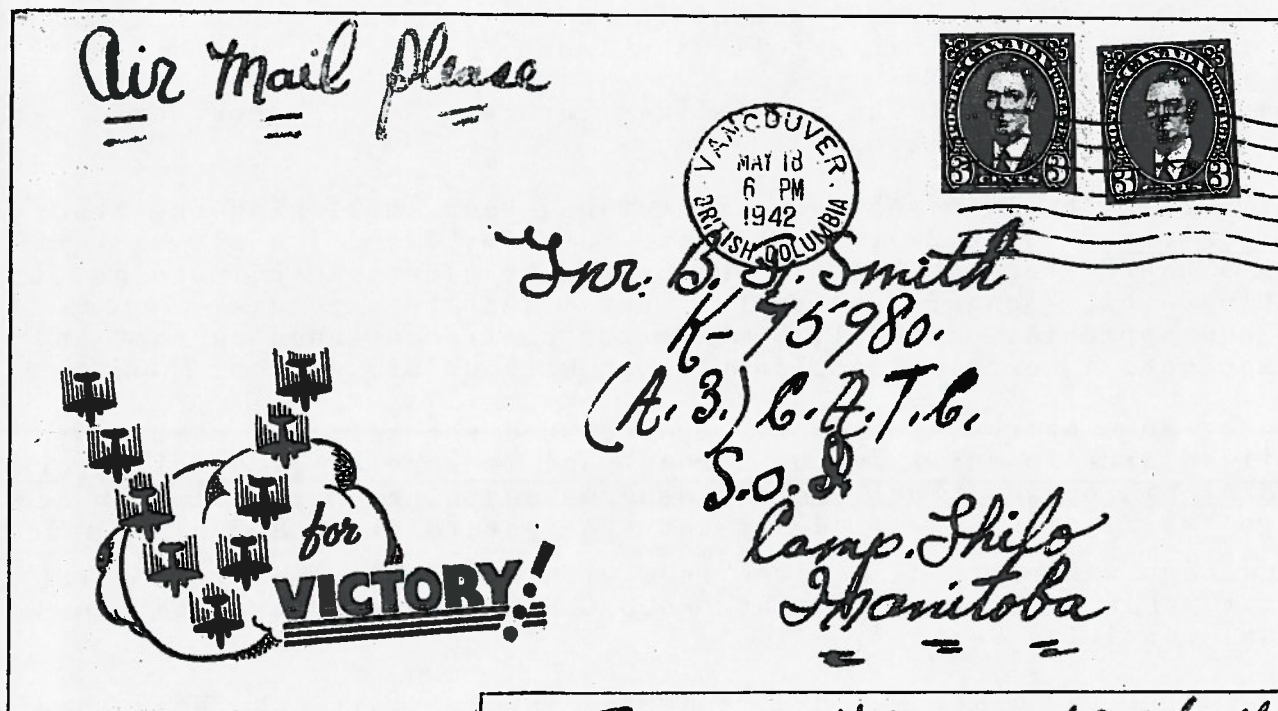 Air Mail Please
POSTES CANADA POSTAGE
3 CENTS 3
POSTES CANADA POSTAGE
3 CENTS 3
VANCOUVER
MAY 18
6 PM
1942
BRITISH COLUMBIA
Gnr. B. H. Smith
K-75980.
(A. 3.) C.A.T.C.
S.O.S.
Camp. Shilo
Manitoba
for
VICTORY!